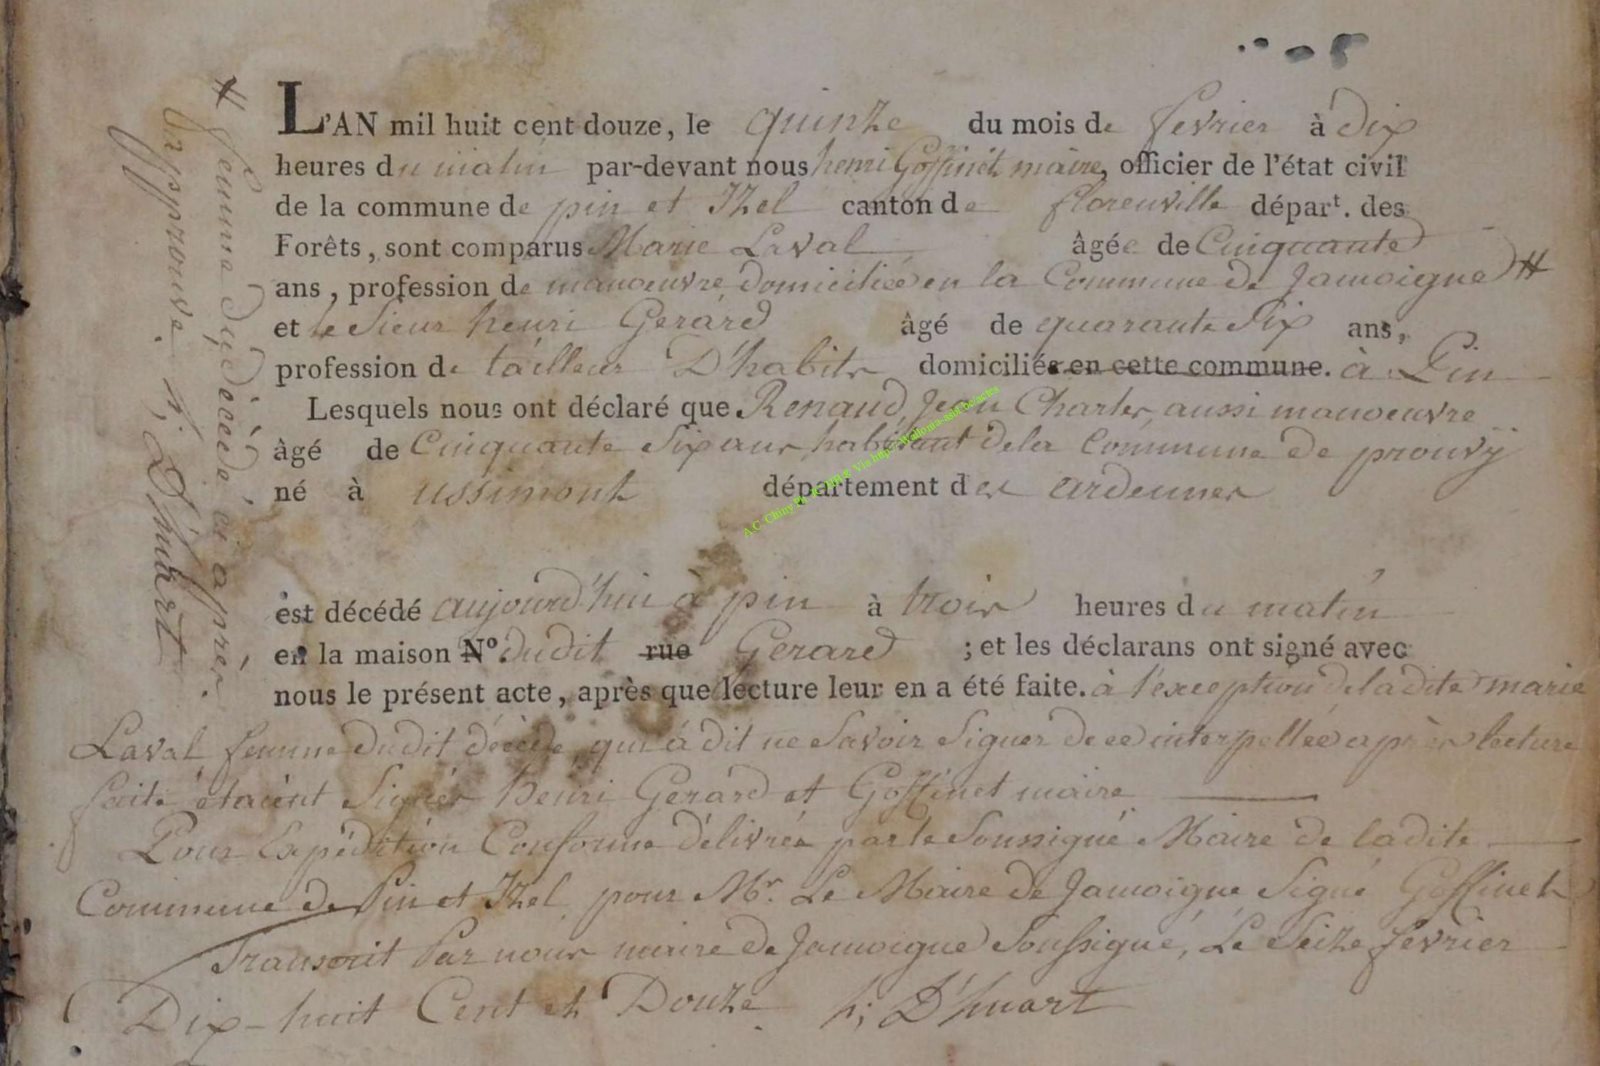 L'AN mil huit cent douze, le quinze du mois de fevrier à dix
heures du matin par-devant nous henri Goffinet maire, officier de l'état civil
de la commune de pin et Izel canton de florenville départ. des
Forêts, sont comparus Marie Laval âgée de Cinquante
ans, profession de manoeuvre domiciliée en la Commune de Jamoigne #
et le Sieur henri Gerard âgé de quarante Six ans,
profession de tailleur D'habits domiciliés en cette commune. à Pin
Lesquels nous ont déclaré que Renaud Jean Charles aussi manoeuvre
âgé de Cinquante Six ans habitant de la Commune de prouvÿ
né à ussimont département des ardennes
est décédé aujourd'hui à pin à trois heures du matin
en la maison No. dudit rue Gerard ; et les déclarans ont signé avec
nous le présent acte, après que lecture leur en a été faite. à l'exception de ladite marie
Laval femme dudit décédé, qui a dit ne Savoir Signer de ce interpellée après lecture
faite étaient Signés henri Gerard et Goffinet maire
Pour Expédition Conforme délivrée par le Soussigné Maire de ladite
Commune de Pin et Izel pour Mr. Le Maire de Jamoigne Signé Goffinet
Transcrit Par nous maire de Jamoigne Soussigné, Le Seize fevrier
Dix-huit Cent et Douze h; D'huart
# femme du décédé ci après,
approuvé.
h; D'huart